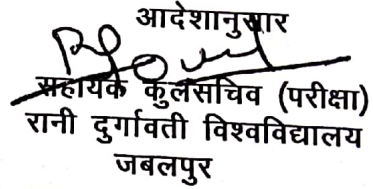 आदेशानुसार
सहायक कुलसचिव (परीक्षा)
रानी दुर्गावती विश्वविद्यालय
जबलपुर